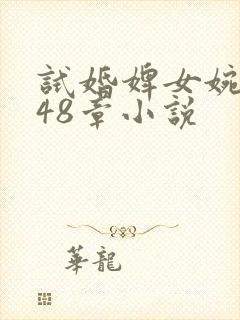 試婚婢女婉
48章小説
華龍